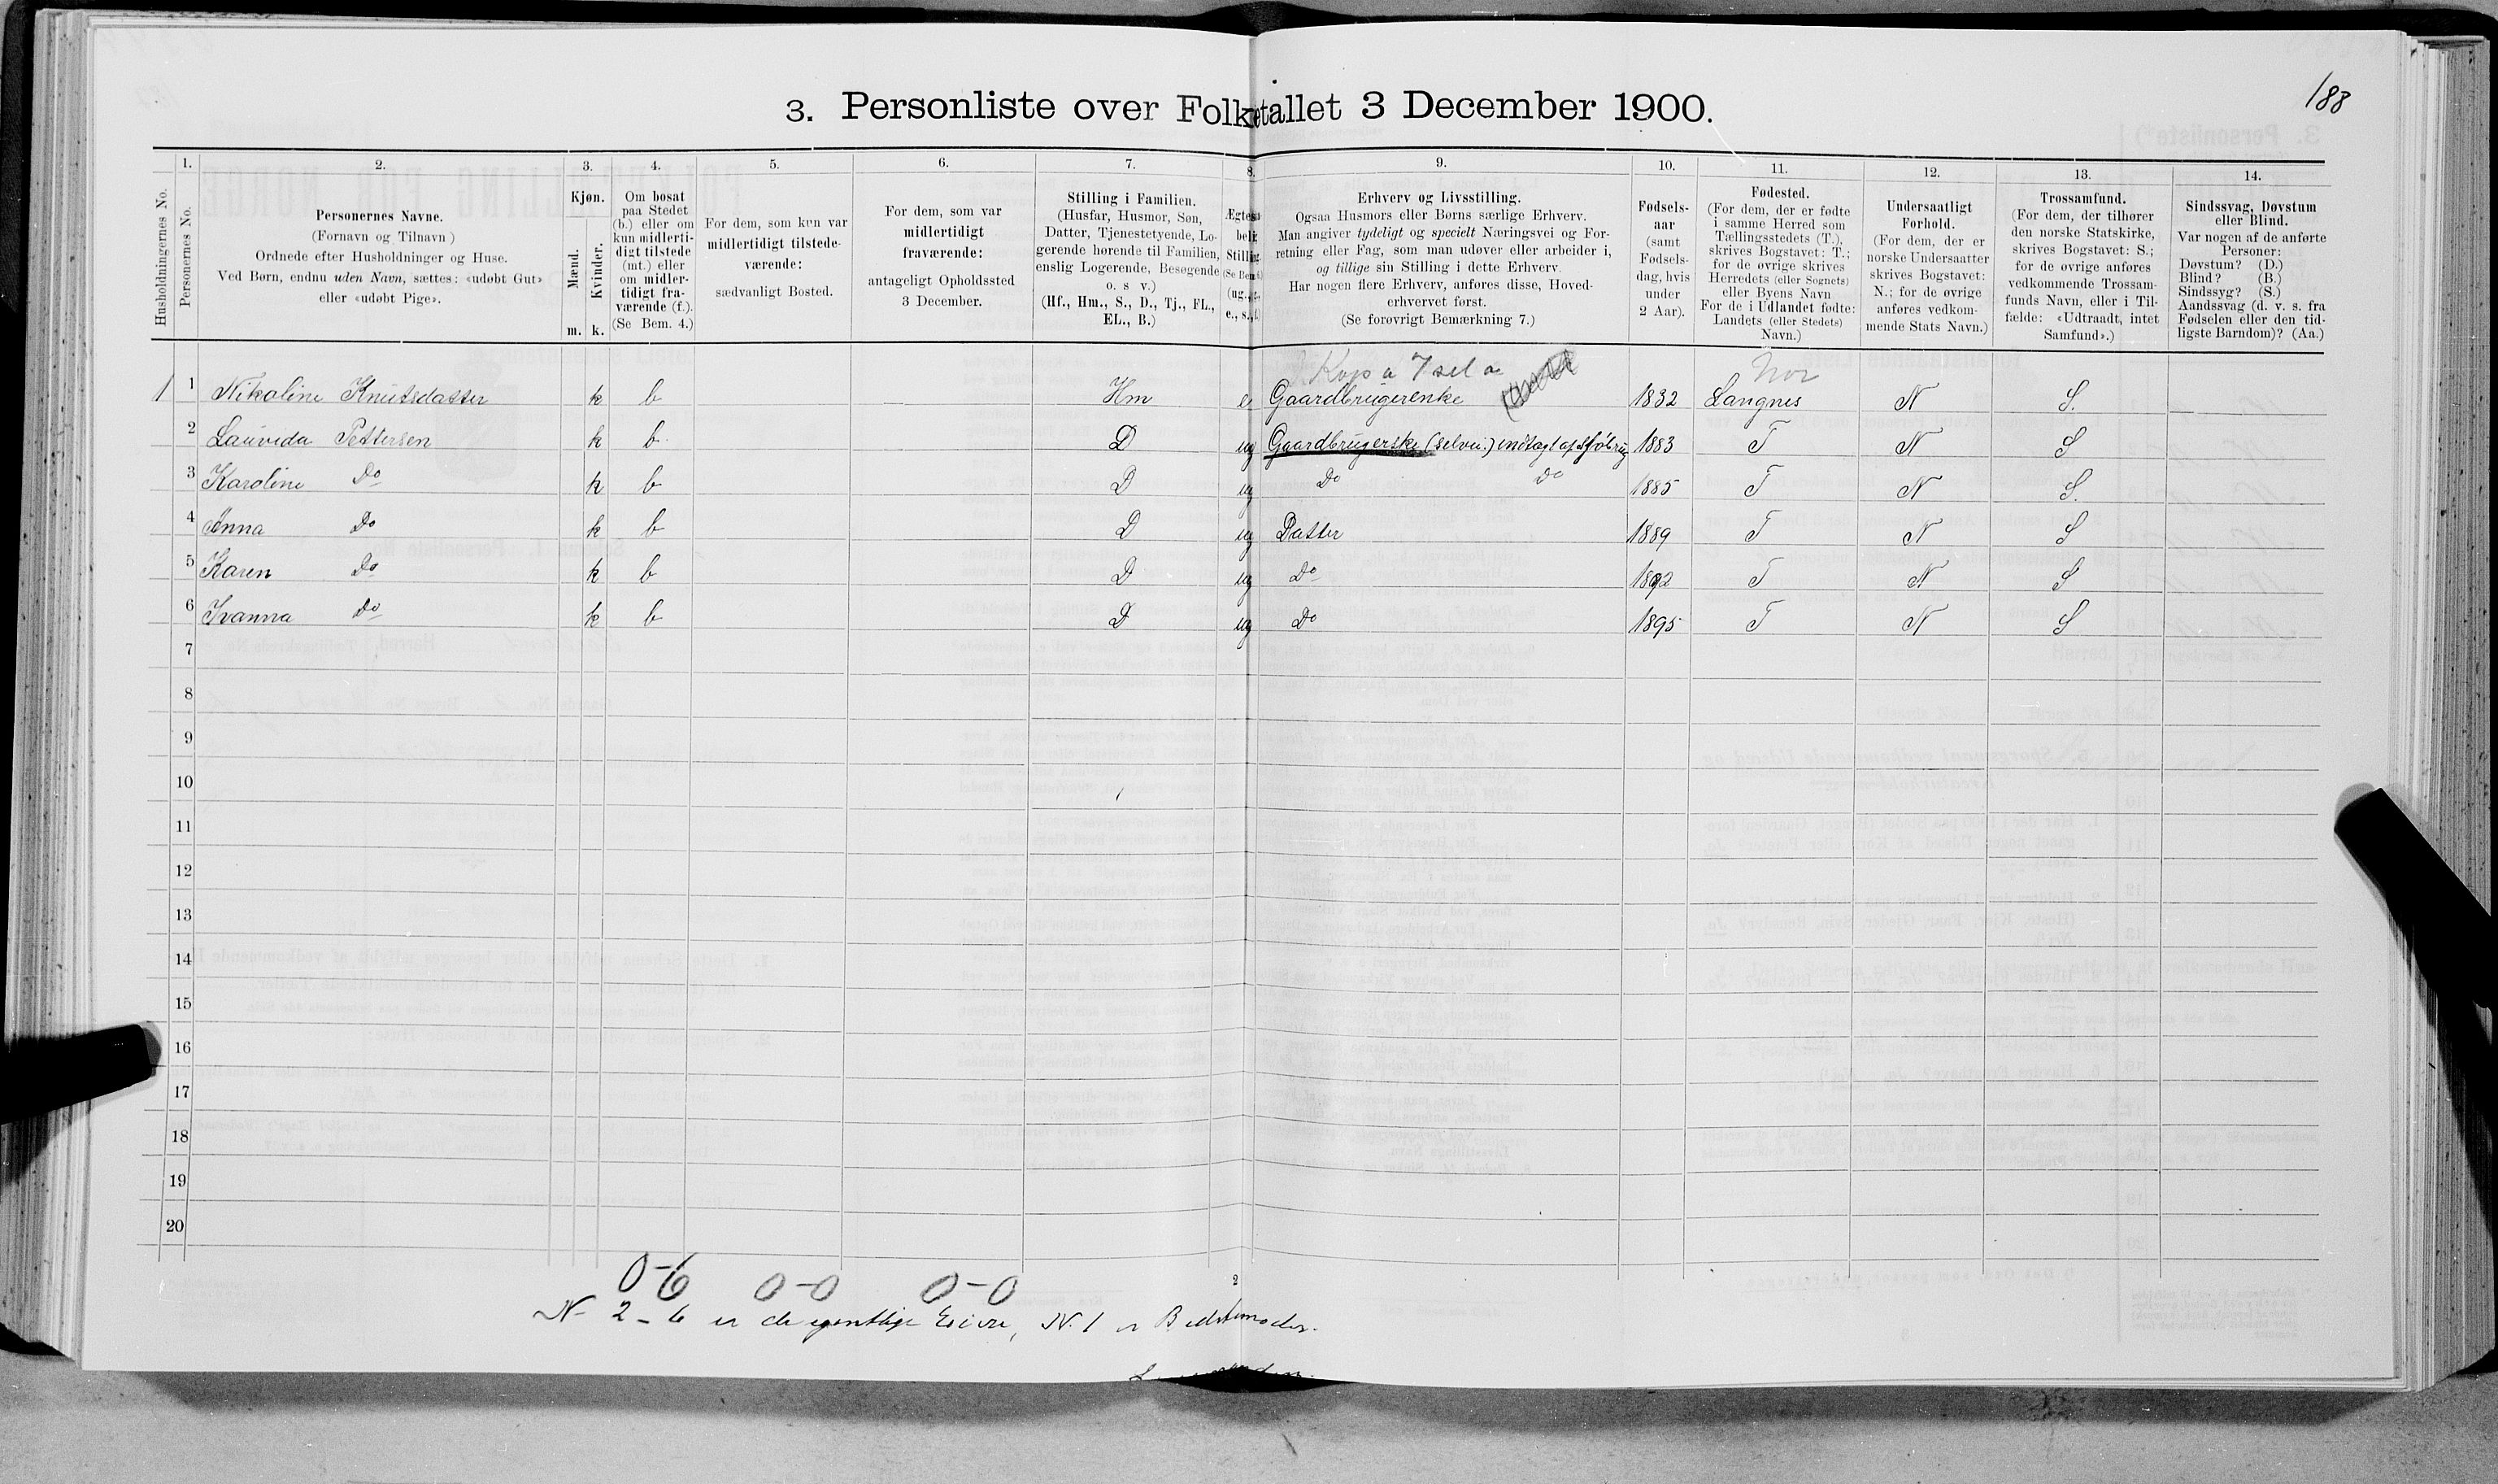 188
3. Personliste over Folketallet 3 December 1900.
1. 2. 3. 4. 5. 6. 7. 8. 9. 10. 11. 12. 13. 14.
Husholdningernes No.
Personernes No.
Personernes Navne.
(Fornavn og Tilnavn )
Ordnede efter Husholdninger og Huse.
Ved Børn, endnu uden Navn, sættes: «udøbt Gut»
eller «udøbt Pige».
Kjøn.
Mænd.
Kvinder.
m. k.
Om bosat
paa Stedet
(b.) eller om
kun midlerti-
digt tilstede
(mt.) eller
om midler-
tidigt fra-
værende (f.).
(Se Bem. 4.)
For dem, som kun var
midlertidigt tilstede-
værende:
sædvanligt Bosted.
For dem, som var
midlertidigt
fraværende:
antageligt Opholdssted
3 December.
Stilling i Familien.
(Husfar, Husmor, Søn,
Datter, Tjenestetyende, Lo-
gerende hørende til Familien,
enslig Logerende, Besøgende
o. s v.)
(Hf., Hm., S., D., Tj., FL.,
EL., B.)
Erhverv og Livsstilling.
Ogsaa Husmors eller Børns særlige Erhverv.
Man angiver tydeligt og specielt Næringsvei og For-
retning eller Fag, som man udøver eller arbeider i,
og tillige sin Stilling i dette Erhverv.
Har nogen flere Erhverv, anføres disse, Hoved-
erhvervet først.
(Se forøvrigt Bemærkning 7.)
Fødsels-
aar
(samt
Fødsels-
dag, hvis
under
2 Aar).
Fødested.
(For dem, der er fødte
i samme Herred som
Tællingsstedets (T.),
skrives Bogstavet: T.;
for de øvrige skrives
Herredets (eller Sognets)
eller Byens Navn
For de i Udlandet fødte:
Landets (eller Stedets)
Navn.)
Undersaatligt
Forhold.
(For dem, der er
norske Undersaatter
skrives Bogstavet:
N.; for de øvrige
anføres vedkom-
mende Stats Navn.)
Trossamfund.
(For dem, der tilhører
den norske Statskirke,
skrives Bogstavet: S.;
for de øvrige anføres
vedkommende Trossam-
funds Navn, eller i Til-
fælde: «Udtraadt, intet
Samfund».)
Sindssvag, Døvstum
eller Blind.
Var nogen af de anførte
Personer:
Døvstum? (D.)
Blind? (B.)
Sindssyg? (S.)
Aandssvag (d. v. s. fra
Fødselen eller den tid-
ligste Barndom)? (Aa.)
1 1 Nikoline Knutsdatter k b Hm e Gaardbrugerenke 1832 Langnes N S.
2 Lauvida Pettersen k b D ug Gaardbrugerske (selvei.) 1883 T N S
3 Karoline Do k b D ug Do Do 1885 T N S.
4 Anna Do k b D ug Datter 1889 T N S
5 Karen Do k b D ug Do 1892 T N S
6 Ivanna Do k b D ug Do 1895 T N S
7
8
9
10
11
12
13
14
15
16
17
18
19
20
0-6 0-0 0-0
2
N- 2-6 er de egentlige Eiere, N. 1 er Bedstemoder.